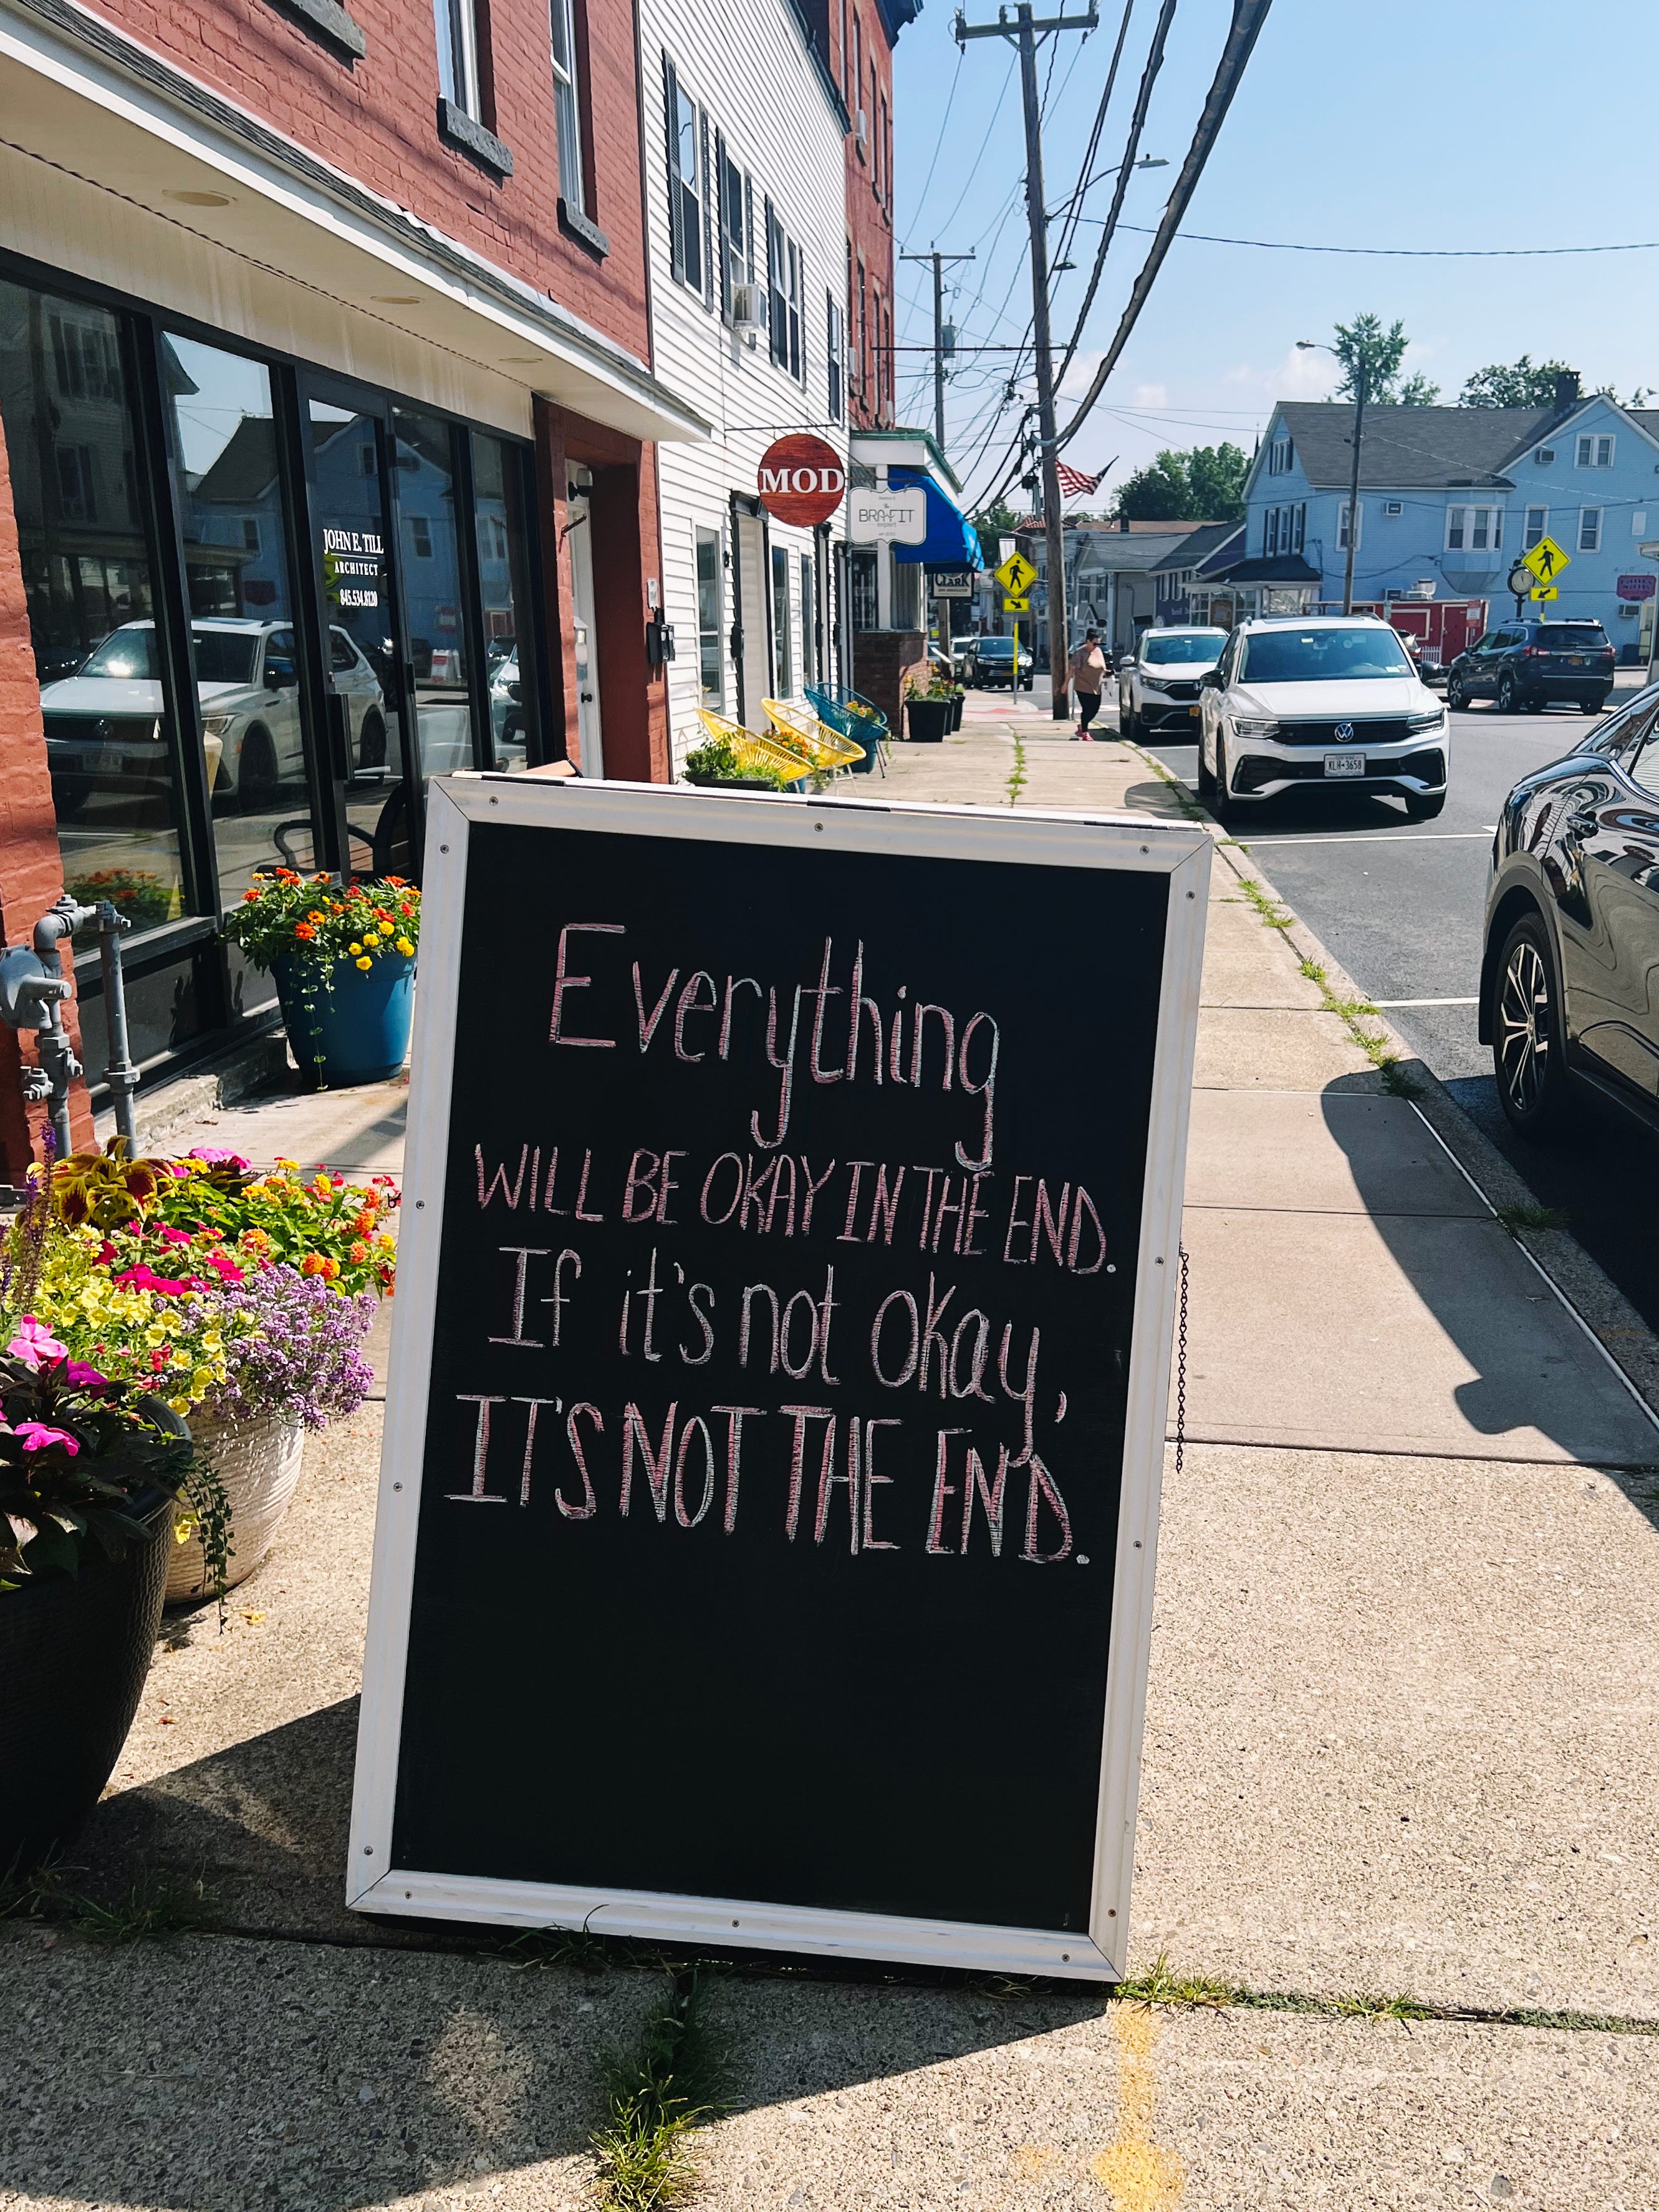 JOHN E. TILL
ARCHITECT
845.534.8120
MOD
BRA•FIT
expert
CLARK
KLH•3658
Everything
WILL BE OKAY IN THE END.
If it's not okay,
IT'S NOT THE END.